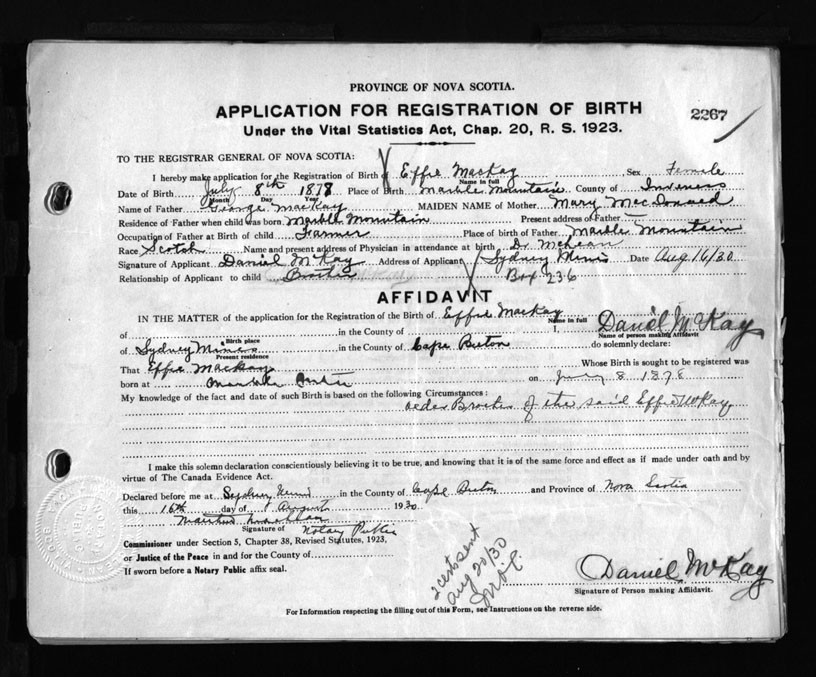 PROVINCE OF NOVA SCOTIA.
APPLICATION FOR REGISTRATION OF BIRTH
2267
Under the Vital Statistics Act, Chap. 20, R. S. 1923.
TO THE REGISTRAR GENERAL OF NOVA SCOTIA:
I hereby make application for the Registration of Birth of Effie MacKay Sex Female
Name in full
Date of Birth July 8th 1878 Place of Birth Marble Mountain County of Inverness
Month Day Year
Name of Father George MacKay MAIDEN NAME of Mother Mary McDonald
Residence of Father when child was born Marble Mountain Present address of Father —
Occupation of Father at Birth of child Farmer Place of birth of Father Marble Mountain
Race Scotch Name and present address of Physician in attendance at birth Dr McLean
Signature of Applicant Daniel McKay Address of Applicant Sydney Mines Date Aug 16/30
Relationship of Applicant to child Brother Box 236
AFFIDAVIT
IN THE MATTER of the application for the Registration of the Birth of Effie MacKay
Name in full
of in the County of I, Daniel McKay
Birth place Name of person making Affidavit
of Sydney Mines in the County of Cape Breton do solemnly declare:
Present residence
That Effie MacKay Whose Birth is sought to be registered was
born at on July 8 1878
My knowledge of the fact and date of such Birth is based on the following Circumstances:
older Brother of the said Effie McKay
I make this solemn declaration conscientiously believing it to be true, and knowing that it is of the same force and effect as if made under oath and by
virtue of The Canada Evidence Act.
Declared before me at Sydney Mines in the County of Cape Breton and Province of Nova Scotia
this 16th day of August 1930
Signature of Notary Public
Commissioner under Section 5, Chapter 38, Revised Statutes, 1923,
or Justice of the Peace in and for the County of
If sworn before a Notary Public affix seal.
2 certs sent
Aug 20/30
Daniel McKay
Signature of Person making Affidavit.
For Information respecting the filling out of this Form, see Instructions on the reverse side.